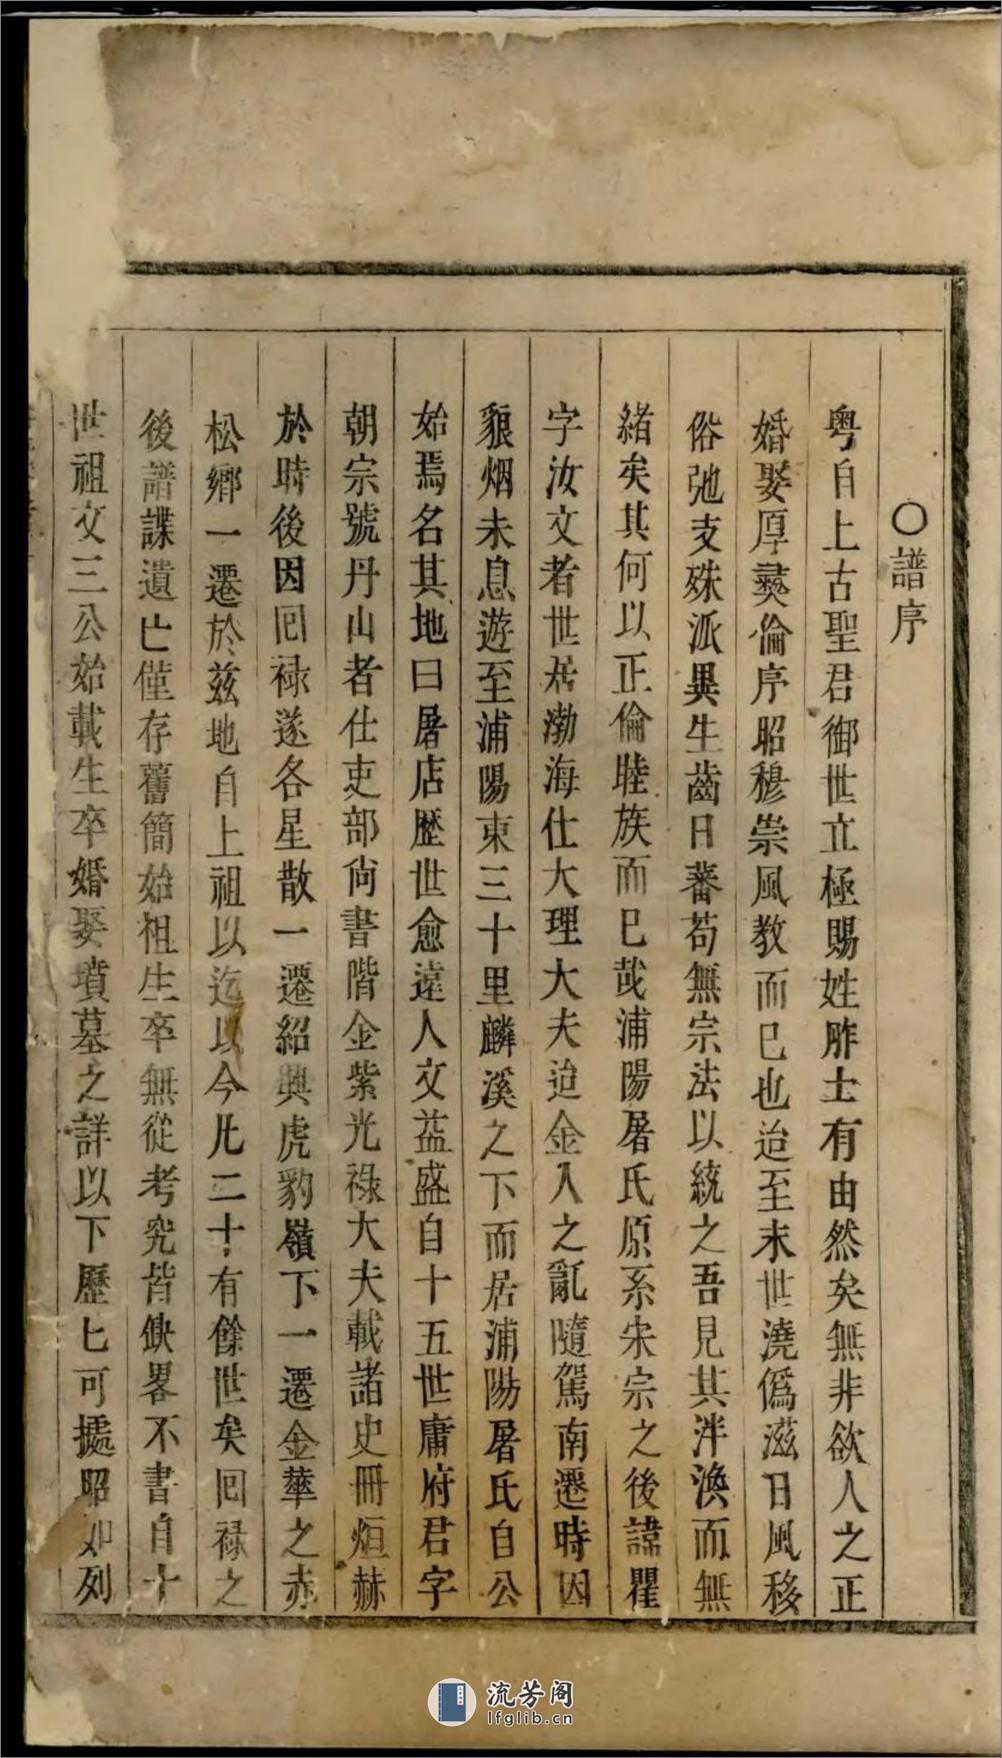 ○譜序
粵自上古聖君御世立極賜姓胙土有由然矣無非欲人之正
婚娶厚彝倫序昭穆崇風教而已也迨至末世澆僞滋日風移
俗弛支殊派異生齒日蕃苟無宗法以統之吾見其泮渙而無
緒矣其何以正倫睦族而已哉浦陽屠氏原系宋宗之後諱瞿
字汝文者世居渤海仕大理大夫迨金人之亂隨駕南遷時因
貌烟未息遊至浦陽東三十里麟溪之下而居浦陽屠氏自公
始焉名其地曰屠店歷世愈遠人文益盛自十五世庸府君字
朝宗號丹山者仕吏部尚書階金紫光祿大夫載諸史冊烜赫
於時後因回祿遂各星散一遷紹興虎豹嶺下一遷金華之赤
松鄉一遷於兹地自上祖以迄以今凡二十有餘世矣回祿之
後譜諜遺亡僅存舊簡始祖生卒無從考究皆缺畧不書自十
世祖文三公始載生卒婚娶墳墓之詳以下歷匕可據昭如列
流芳阁
lfglib.cn